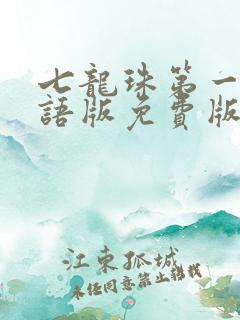 七龍珠第一
語版免費版
江東孤城
未经同意禁止转载